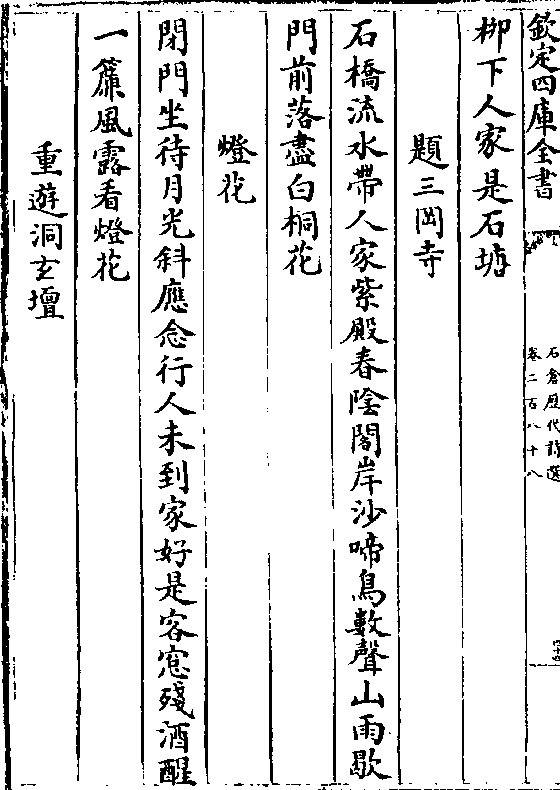 欽定四庫全書
石倉歷代詩選
卷二百八十八
柳下人家是石塘
題三岡寺
石橋流水帶人家紫殿春陰閣岸沙啼鳥數聲山雨歇
門前落盡白桐花
燈花
閉門坐待月光斜應念行人未到家好是客窓殘酒醒
一簾風露看燈花
重遊洞玄壇